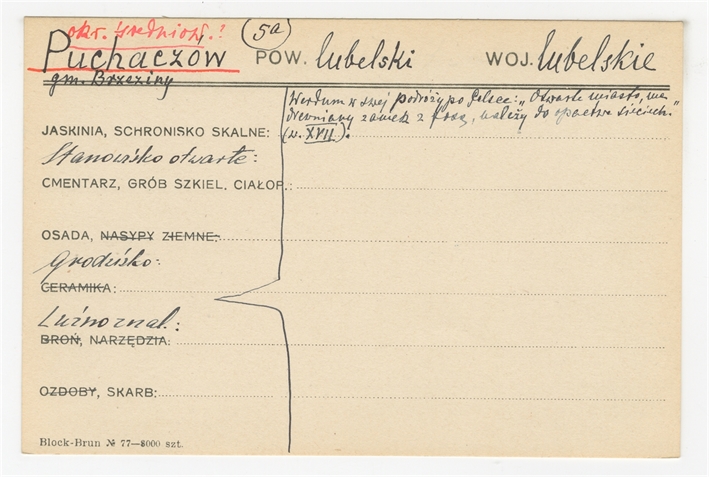 okr. średniow.?
5a
Puchaczów POW. lubelski WOJ. lubelskie
gm. Brzeziny
Werdum w swej podróży po Polsce: „Otwarte miasto, ma
drewniany zamek z fosą, należy do opactwa sieciech."
(w. XVII).
JASKINIA, SCHRONISKO SKALNE:
Stanowisko otwarte:
CMENTARZ, GRÓB SZKIEL. CIAŁOP.:
OSADA, NASYPY ZIEMNE:
Grodzisko:
CERAMIKA:
Luźno znal.:
BROŃ, NARZĘDZIA:
OZDOBY, SKARB:
Block-Brun № 77—8000 szt.